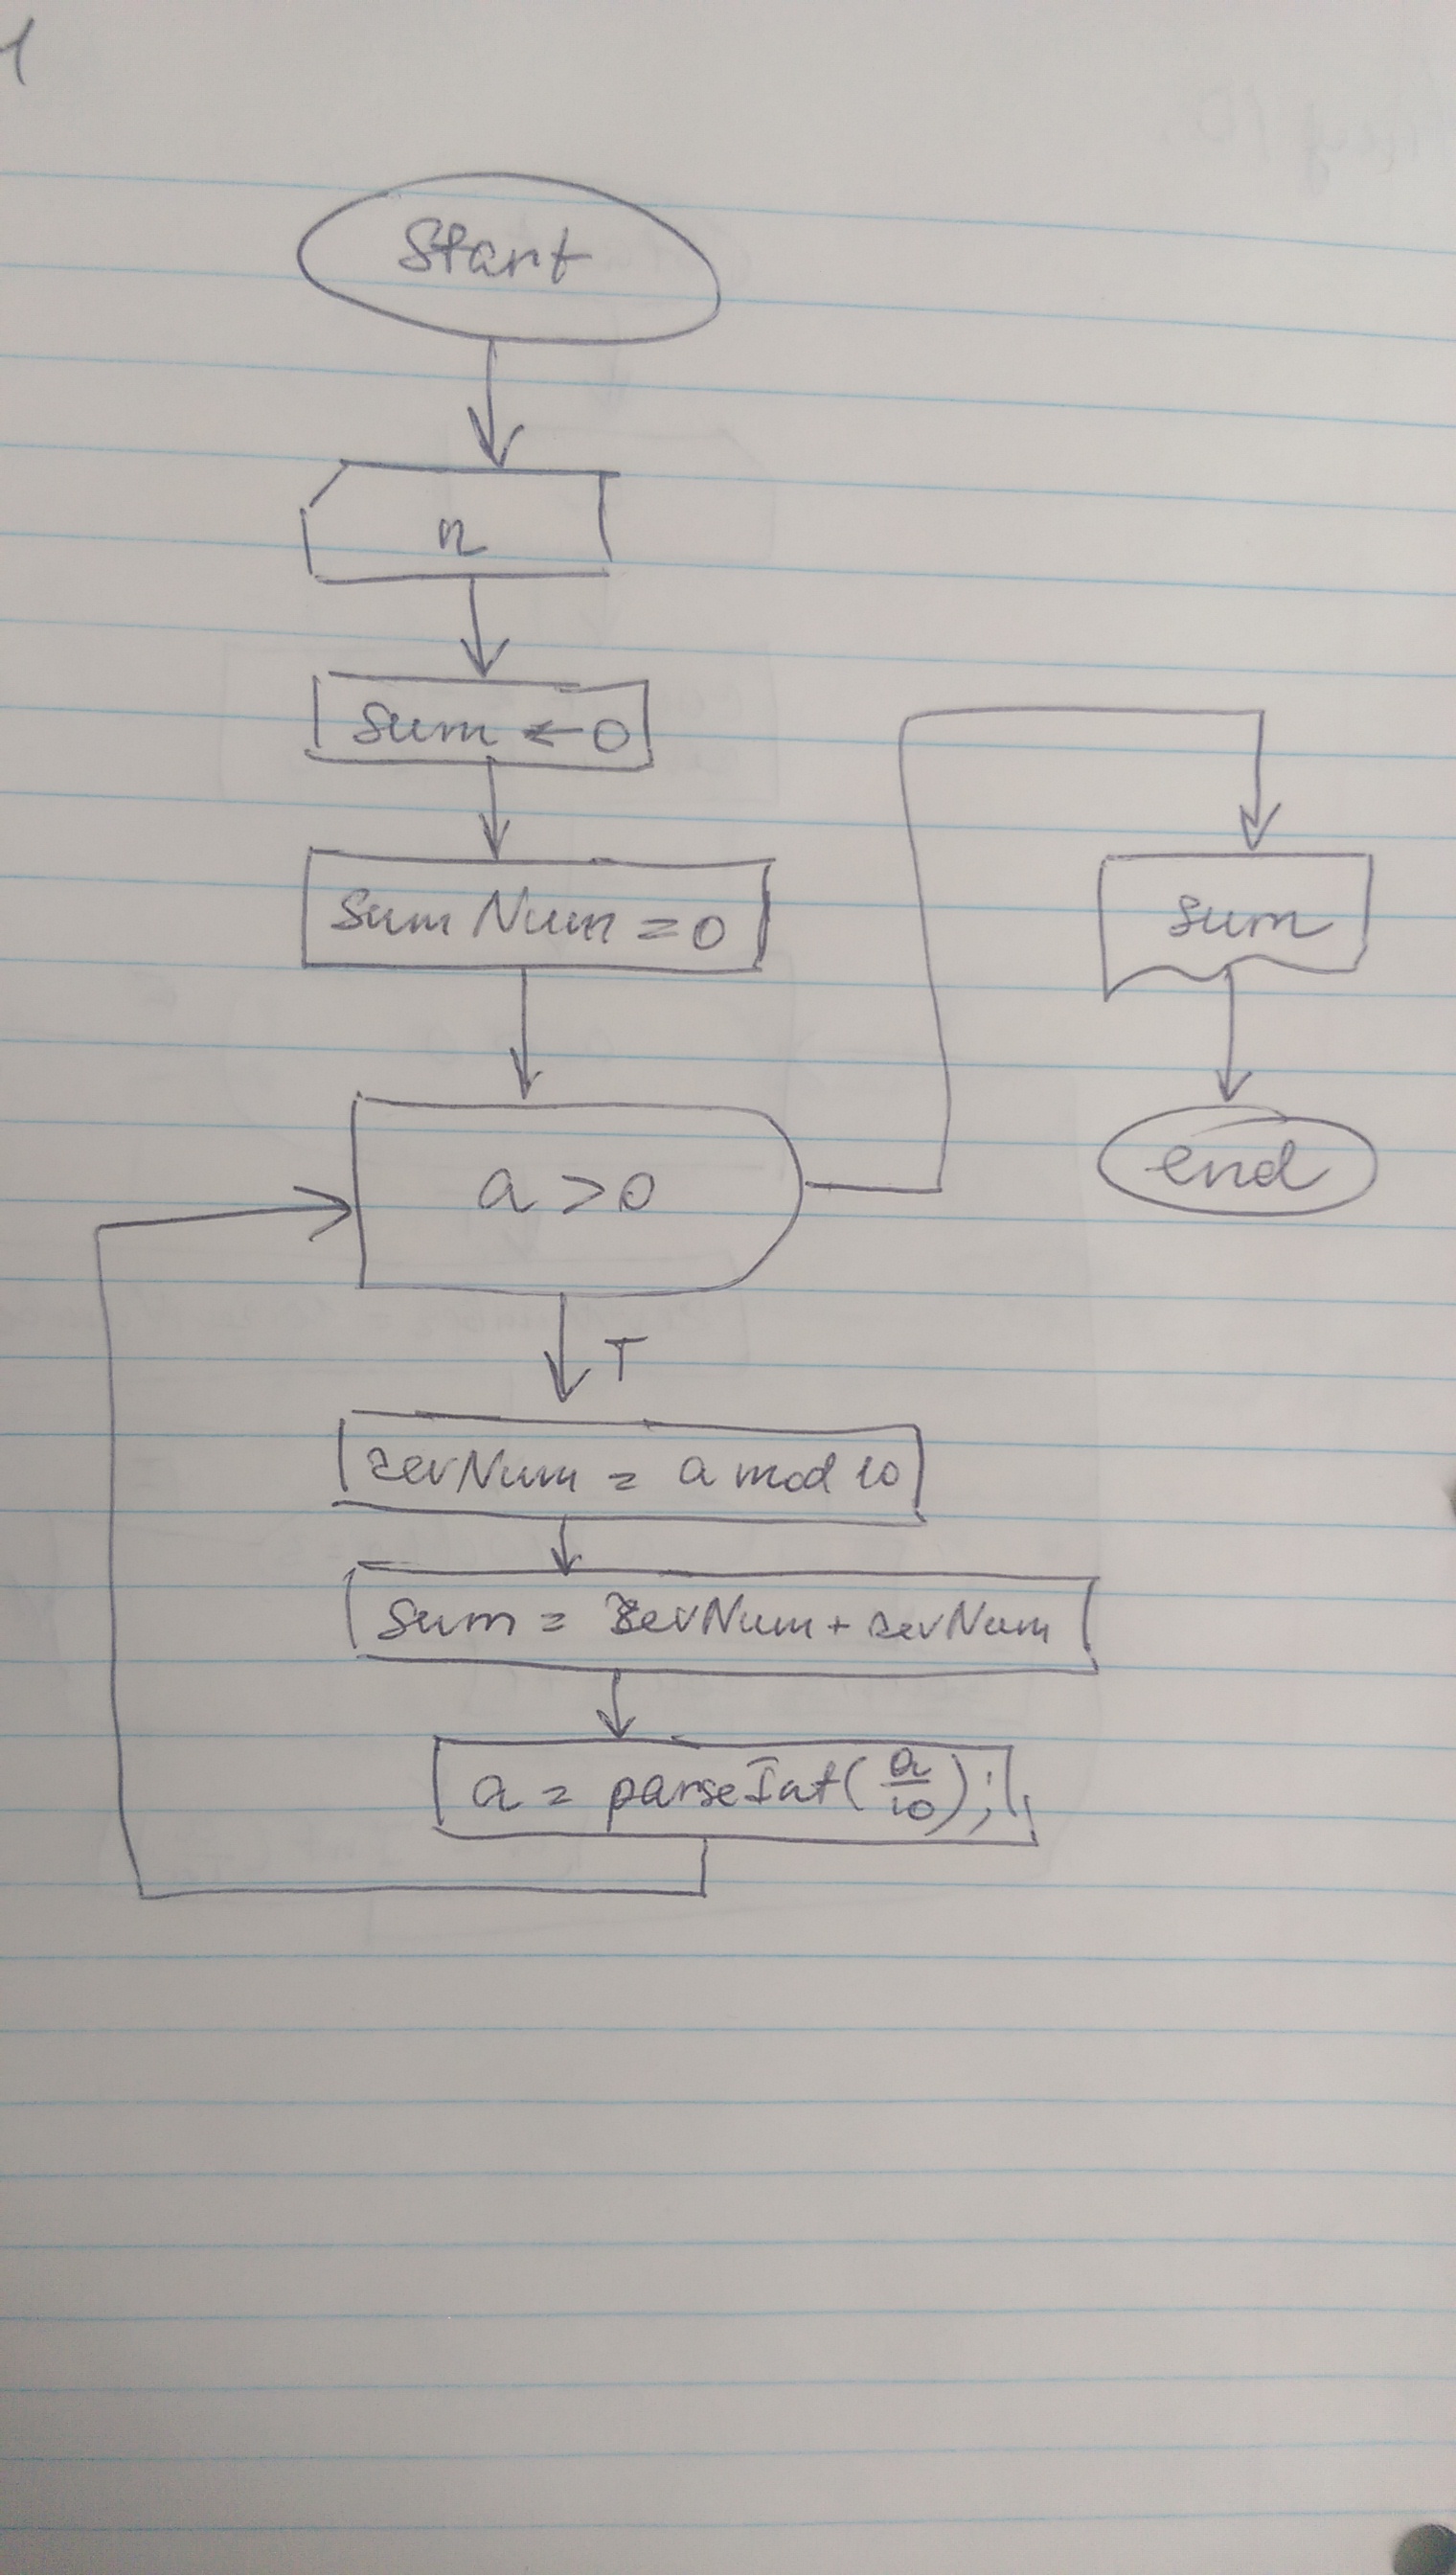 Start
n
sum ← 0
sumNum = 0
a > 0
T
revNum = a mod 10
sum = revNum + revNum
a = parseInt(a/10);
sum
end